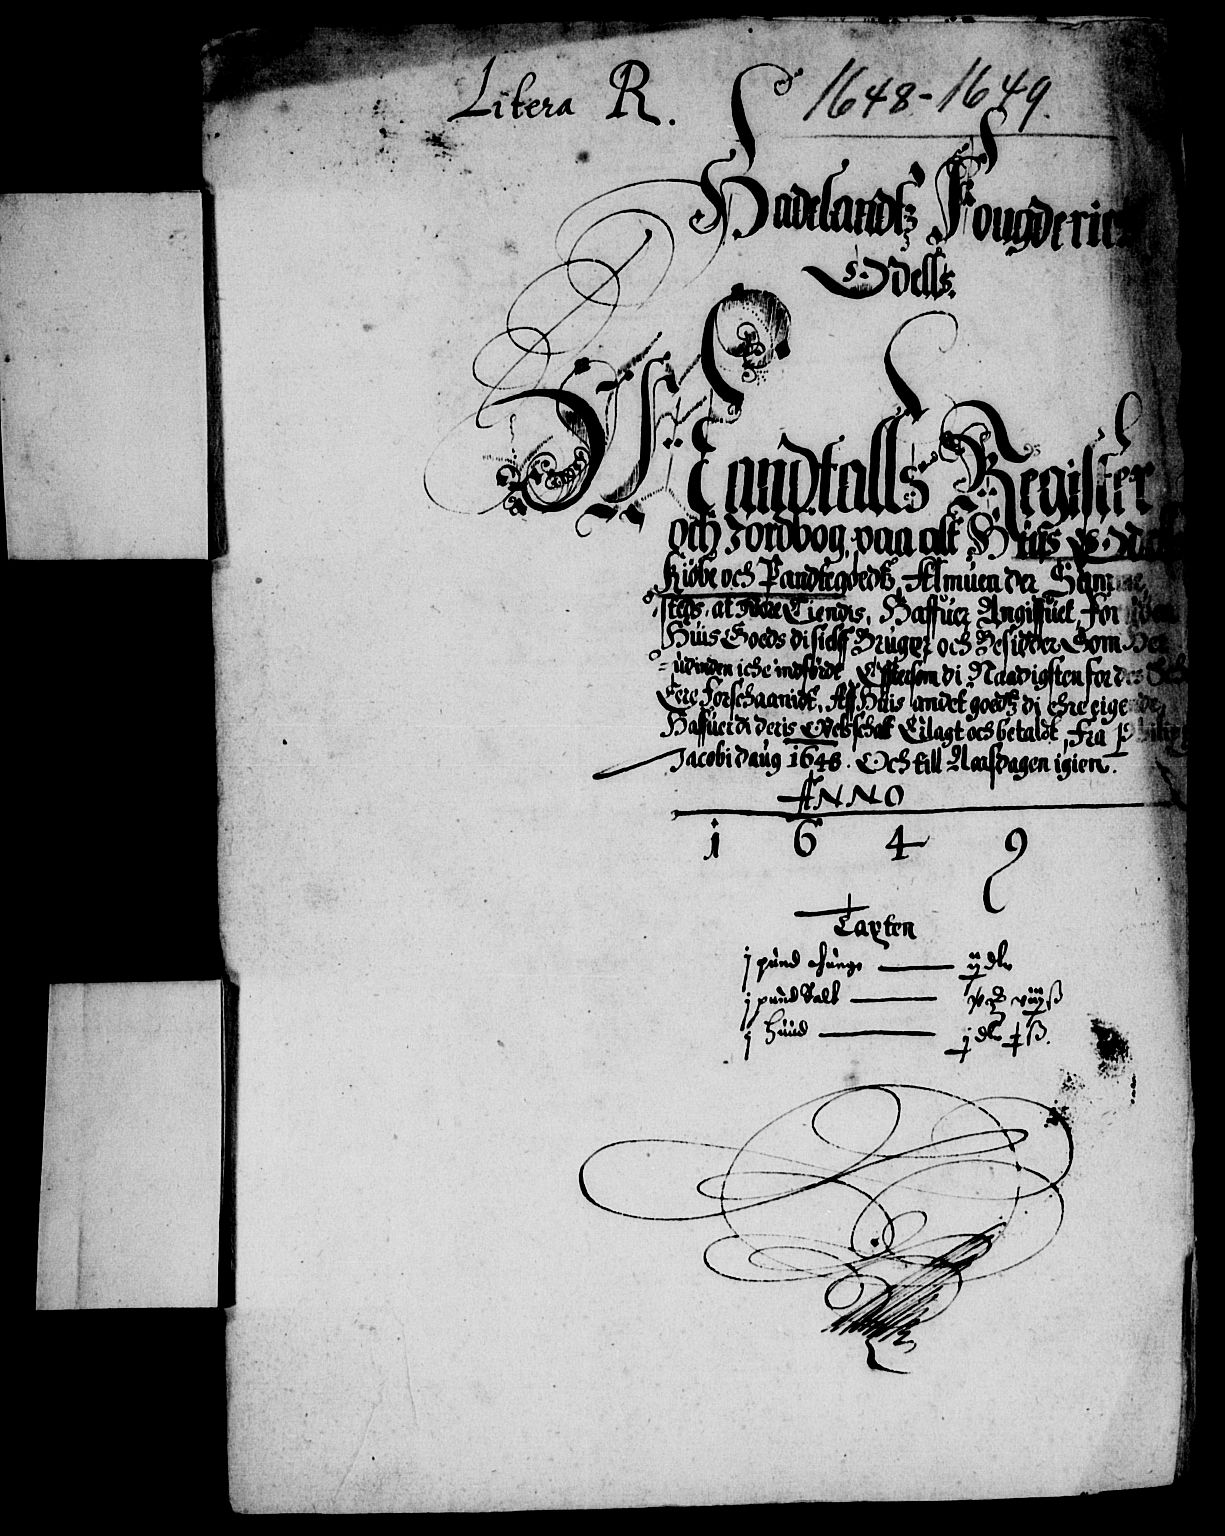 Litera R.
1648-1649.
Hadelandtz Fougderies
Odells.
Mandtalls Register
och Jordbog, paa alt Huis Odels
Kiøbe och Pandtegoedtz, Almuen der Samme,
steds, at Tiendis, Haffuer Angiffuet, for
Huis Goeds di sielff Bruger och Besidder Som Her
udinden iche indførdt, Efftersom di Naadigsten for des
Forschaanidt, Aff Huis andet goedtz di ehre eigende,
Haffuer di deris Odelsschat Eilagt och betaldt, fra Philip
Jacobi daug 1648. Och till Aarsdagen igien.
ANNO
1 6 4 9
Taxten
j pund tunge — ij dlr
j pund Salt — viij ß
j Huud — j dlr ß.